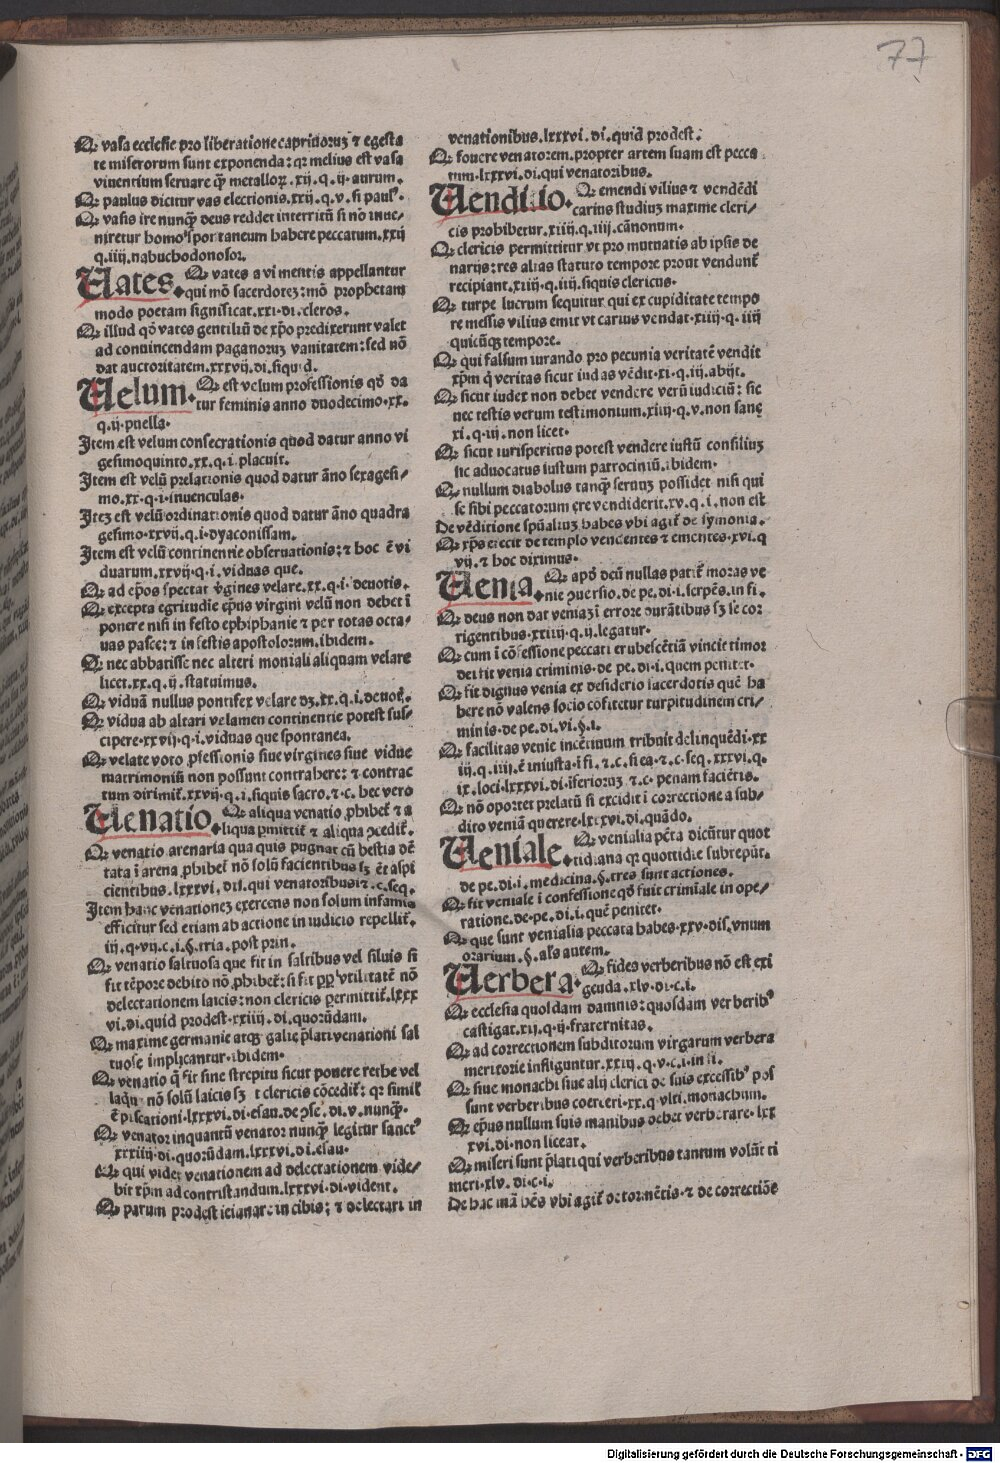 77
Q; vasa ecclesie pro liberatione captiuoruʒ ⁊ egesta
te miserorum sunt exponenda: qꝛ melius est vasa
viuentium seruare qͣ̄ metalloꝝ.xij.q.ij.aurum.
Q; paulus dicitur vas electionis.xxij.q.v.si paulꝰ.
Q; vasis ire nunqͣ̄ deus reddet interritū si nō inue/
niretur homo spontaneum habere peccatum.xxij
q.iiij.nabuchodonosor.
Vates. Q; vates a vi mentis appellantur
qui mō sacerdoteʒ: mō prophetam
modo poetam significat.xxi.di.cleros.
Q; illud qd̄ vates gentiliū de xp̄o predixerunt valet
ad conuincendam paganoruʒ vanitatem: sed nō
dat auctoritatem.xxxvij.di.siquid.
Velum. Q; est velum professionis qd̄ da
tur feminis anno duodecimo.xx.
q.ij.puella.
Item est velum consecrationis quod datur anno vi
gesimoquinto.xx.q.i.placuit.
Item est velū prelationis quod datur āno sexagesi/
mo.xx.q.i.iuuenculas.
Iteʒ est velū ordinationis quod datur āno quadra
gesimo.xxvij.q.i.dyaconissam.
Item est velū continentie obseruationis: ⁊ hoc ē vi
duarum.xxvij.q.i.viduas que.
Q; ad ep̄os spectat v̓gines velare.xx.q.i.deuotis.
Q; excepta egritudīe ep̄us virgini velū non debet ī
ponere nisi in festo ephiphanie ⁊ per totas octa/
uas pasce: ⁊ in festis apostolorum.ibidem.
Q; nec abbatisse nec alteri moniali aliquam velare
licet.xx.q.ij.statuimus.
Q; viduā nullus pontifex velare dʒ.xx.q.i.deuot̄.
Q; vidua ab altari velamen continentie potest sus/
cipere.xxvij.q.i.viduas que spontanea.
Q; velate voto ꝓfessionis siue virgines siue vidue
matrimoniū non possunt contrahere: ⁊ contrac
tum dirimit̄.xxvij.q.i.siquis sacro.⁊.c.hec vero
Venatio. Q; aliqua venatio ꝓhibet̄ ⁊ a
liqua ꝑmittit̄ ⁊ aliqua ↄcedit̄.
Q; venatio arenaria qua quis pugnat cū bestia dē
tata ī arena ꝓhibet̄ nō solū facientibus sʒ ēt aspi
cientibus.lxxxvi.dis.qui venatoribus ⁊.c.seq.
Item hanc venationeʒ exercens non solum infamis
efficitur sed etiam ab actione in iudicio repellit̄.
iij.q.vij.c.i.§.tria.post prin.
Q; venatio saltuosa que fit in saltibus vel siluis si
fit tēpore debito nō ꝓhibet̄: si fit ꝓpꝉ vtilitatē nō
delectationem laicis: non clericis permittit̄.lxxx
vi.di.quid prodest.xxiiij.di.quorūdam.
Q; maxime germanie atqʒ galie p̄lati venationi sal
tuose implicantur.ibidem.
Q; venatio q̄ fit sine strepitu sicut ponere rethe vel
laqu nō solū laicis sʒ t clericis cōcedit̄: qꝛ simil̄
ē piscationi.lxxxvi.di.esau.de ↄse.di.v.nunqͣ̄.
Q; venator inquantū venator nunqͣ̄ legitur sanctꝰ
xxxiiij.di.quorūdam.lxxxvi.di.esau.
Q; qui videt venationem ad delectationem vide/
bit xp̄m ad contristandum.lxxxvi.di.vident.
Q; parum prodest ieiunare in cibis: ⁊ delectari in
venationibus.lxxxvi.di.quid prodest.
Q; fouere venatorem.propter artem suam est pecca
tum.lxxxvi.di.qui venatoribus.
Venditio. Q; emendi vilius ⁊ vendēdi
carius studiuʒ maxime cleri/
cis prohibetur.xiiij.q.iiij.cānonum.
Q; clericis permittitur vt pro mutuatis ab ipsis de
narijs: res alias statuto tempore prout vendunt̄
recipiant.xiiij.q.iiij.siquis clericus.
Q; turpe lucrum sequitur qui ex cupiditate tempo
re messis vilius emit vt carius vendat.xiiij.q.iiij
quicūqʒ tempore.
Q; qui falsum iurando pro pecunia veritatē vendit
xp̄m q̄ veritas sicut iudas vēdit.xi.q.iij.abijt.
Q; sicut iudex non debet vendere verū iudiciū: sic
nec testis verum testimonium.xiiij.q.v.non sane
xi.q.iij.non licet.
Q; sicut iurisperitus potest vendere iustū consiliuʒ
sic aduocatus iustum patrociniū.ibidem.
Q; nullum diabolus tanqͣ̄ seruuʒ possidet nisi qui
se sibi peccatorum ere vendiderit.xv.q.i.non est
De vēditione sp̄ualiuʒ habes vbi agit̄ de symonia.
Q; xp̄s eiecit de templo vendentes ⁊ ementes.xvi.q
vij.⁊ hoc diximus.
Venia. Q; apd̄ deū nullas patit̄ moras ve
nie ↄuersio.de pe.di.i.serpēs.in fi.
Q; deus non dat veniaʒ ī errore durātibus sʒ se cor
rigentibus.xxiiij.q.ij.legatur.
Q; cum ī cōfessione peccati erubescētiā vincit timor
dei fit venia criminis.de pe.di.i.quem penitet.
Q; fit dignus venia ex desiderio sacerdotis quē ha
bere nō valens socio cōfitetur turpitudinem cri/
minis.de pe.di.vi.§.i.
Q; facilitas venie incētiuum tribuit delinquēdi.xx
iij.q.iiij.ē iniusta.ī fi.⁊.c.si ea.⁊.c.seq.xxxvi.q.
ix.loci.lxxxvi.di.īferioruʒ ⁊.c.penam faciētis.
Q; nō oportet prelatū si excidit ī correctione a sub/
dito veniā querere.lxxxvi.di.quādo.
Veniale. Q; venialia pc̄ta dicūtur quot
tidiana qꝛ quottidie subrepūt.
de pe.di.i.medicina.§.tres sunt actiones.
Q; fit veniale ī confessione qd̄ fuit criminale in ope/
ratione.de.pe.di.i.quē penitet.
Q; que sunt venialia peccata habes.xxv.dis.vnum
orarium.§.als autem.
Verbera. Q; fides verberibus nō est exi
genda.xlv.di.c.i.
Q; ecclesia quosdam damnis: quosdam verberibꝰ
castigat.xij.q.ij.fraternitas.
Q; ad correctionem subditorum virgarum verbera
meritorie infliguntur.xxiij.q.v.c.i.in fi.
Q; siue monachi siue alij clerici de suis excessibꝰ pos
sunt verberibus coerceri.xx.q.vlti.monachum.
Q; ep̄us nullum suis manibus debet verberare.lxx
xvi.di.non liceat.
Q; miseri sunt p̄lati qui verberibus tantum volūt ti
meri.xlv.di.c.i.
De hac mā hēs vbi agit̄ de tormētis.⁊ de correctiōe
Digitalisierung gefördert durch die Deutsche Forschungsgemeinschaft - DFG